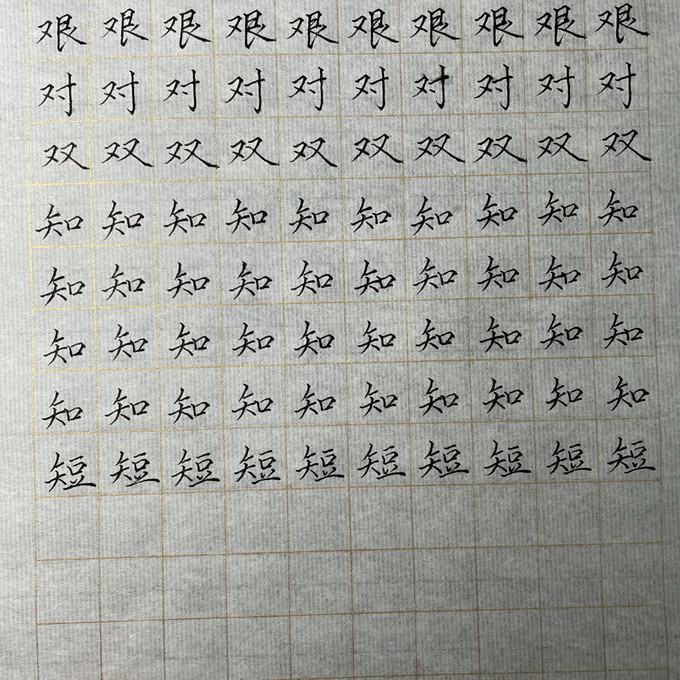 艰艰艰艰艰艰艰艰艰艰
对对对对对对对对对对
双双双双双双双双双双
知知知知知知知知知知
知知知知知知知知知知
知知知知知知知知知知
知知知知知知知知知知
短短短短短短短短短短